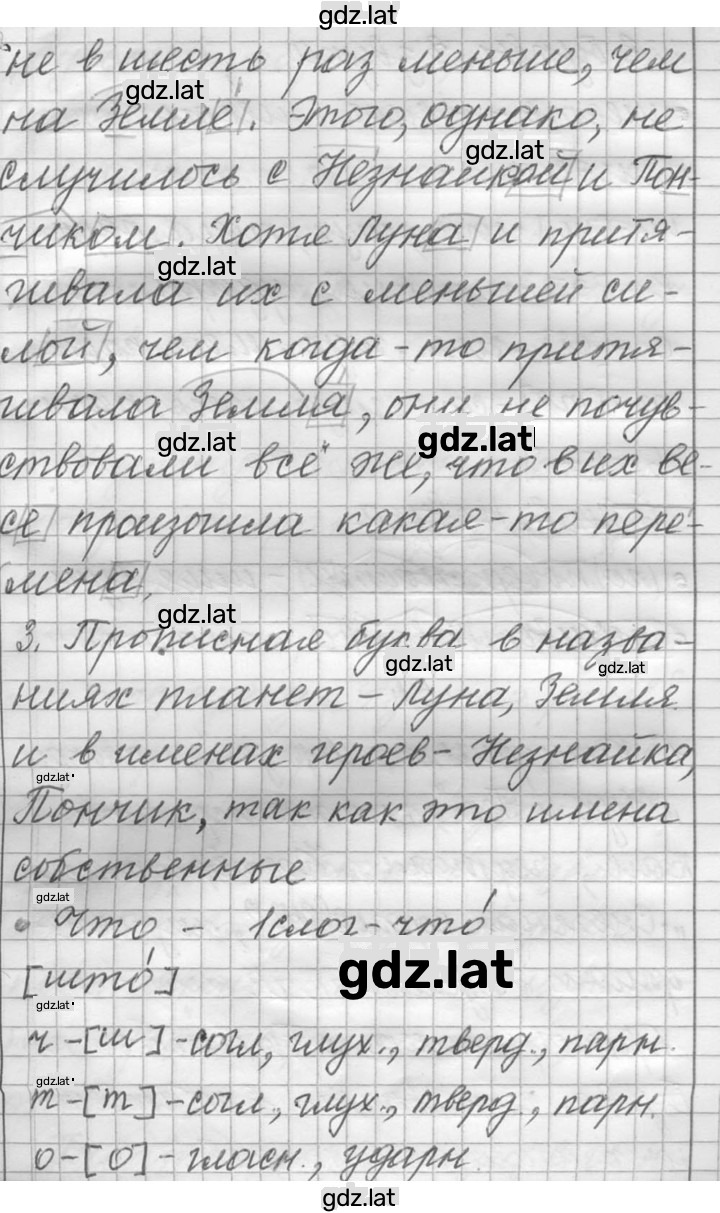 gdz.lat
не в шесть раз меньше, чем
gdz.lat
на Земле. Этого, однако, не
gdz.lat
случилось с Незнайкой и Пон-
чиком. Хотя Луна и притя-
gdz.lat
гивала их с меньшей си-
лой, чем когда-то притя-
гивала Земля, они не почув-
gdz.lat
gdz.lat
ствовали всё же, что в их ве-
се произошла какая-то пере-
мена.
gdz.lat
3. Прописная буква в назва-
gdz.lat
gdz.lat
ниях планет - Луна, Земля
и в именах героев - Незнайка,
gdz.lat
Пончик, так как это имена
собственные
gdz.lat
• Что - 1 слог - что́
gdz.lat
[што́]
gdz.lat
ч - [ш] - согл, глух., тверд., парн.
gdz.lat
т - [т] - согл., глух., тверд., парн.
о - [о] - гласн., ударн.
gdz.lat